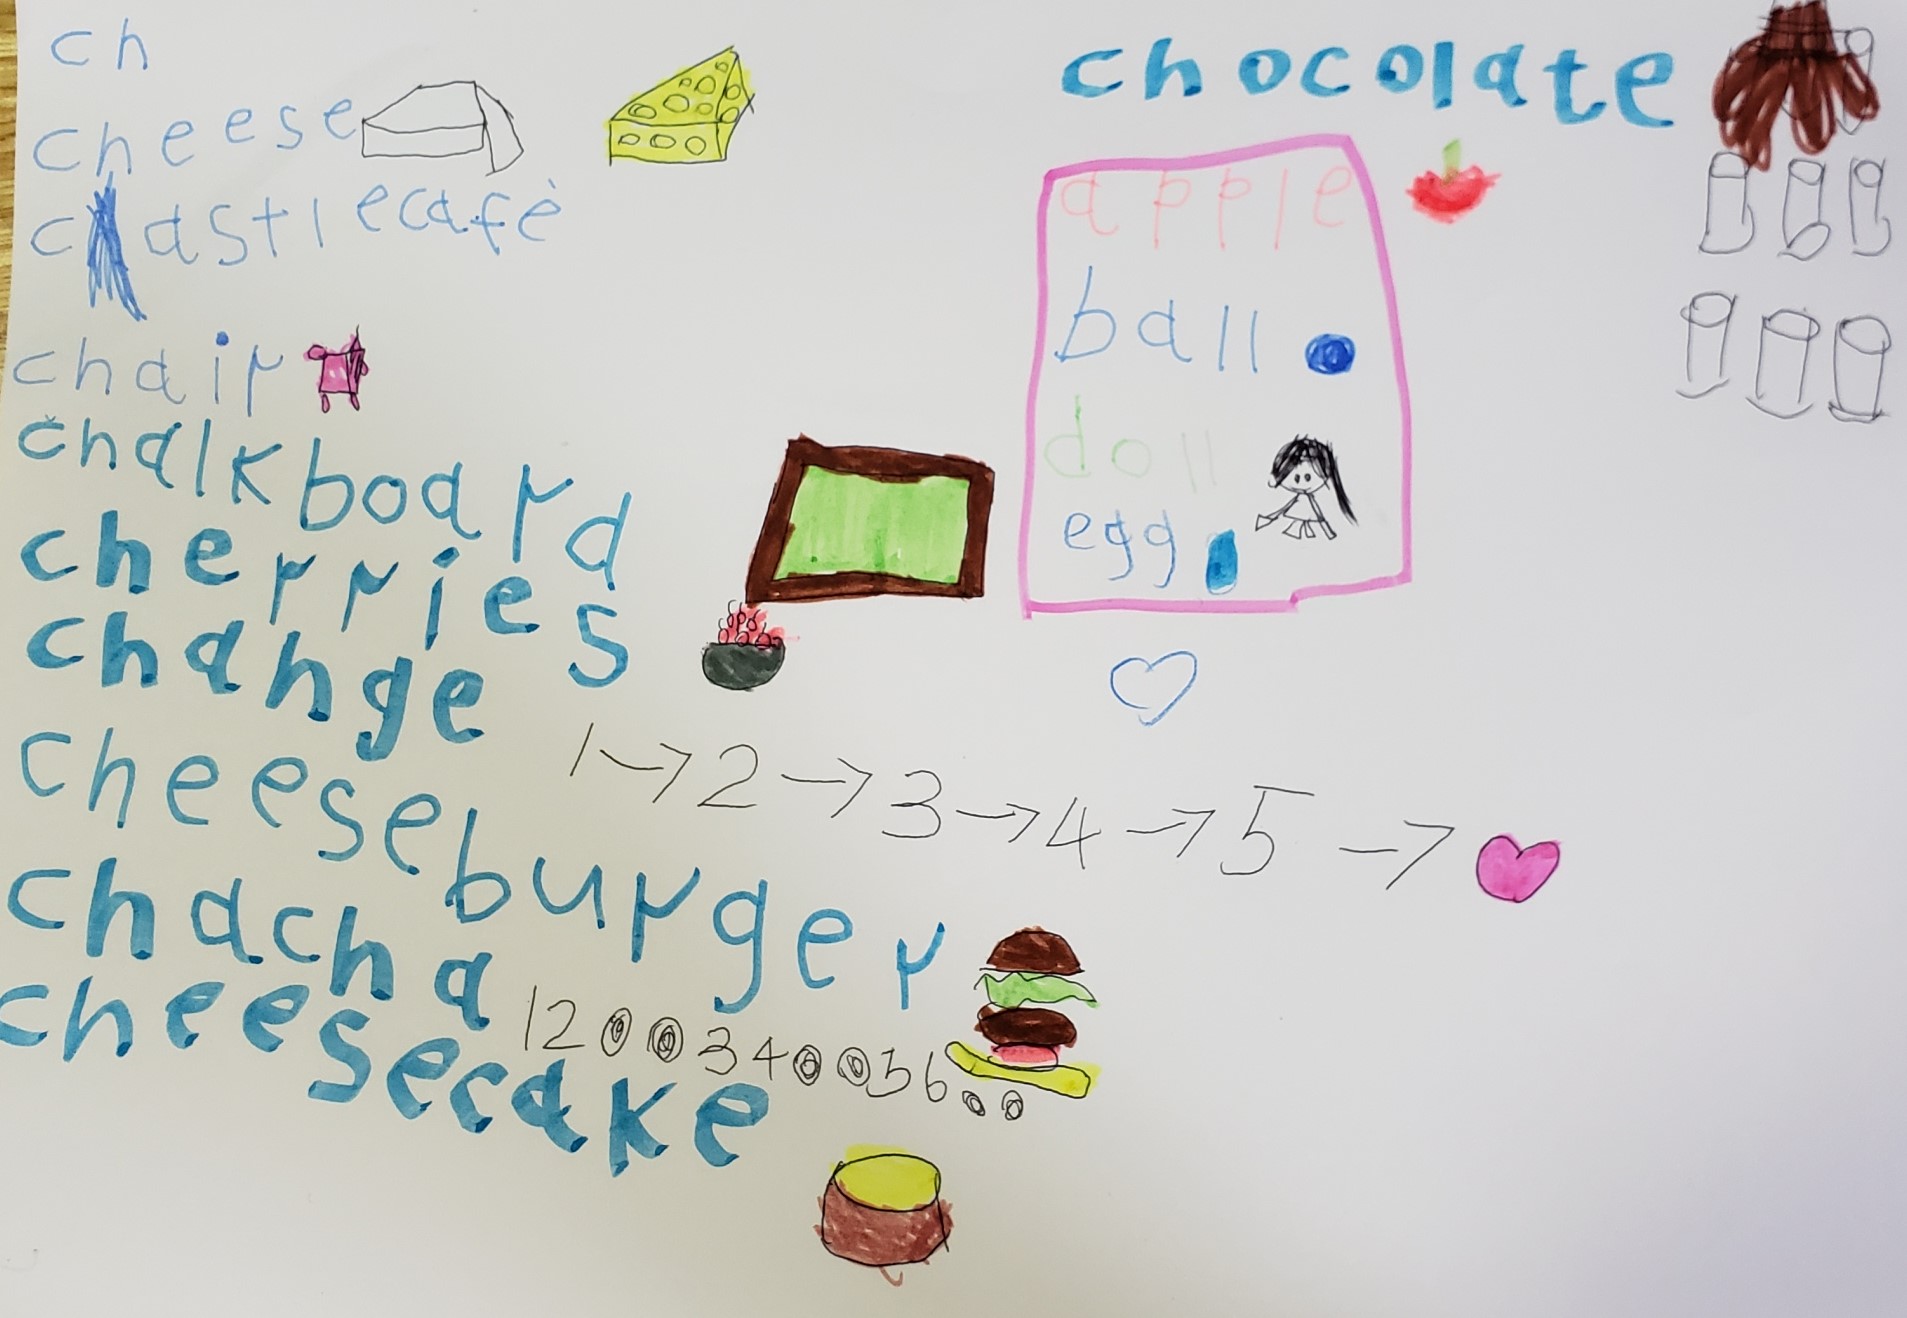 ch
cheese
castlecafè
chair
chalkboard
cherries
change
1→2→3→4→5→
cheeseburger
chacha
12 34 56
cheesecake
chocolate
apple
ball
doll
egg